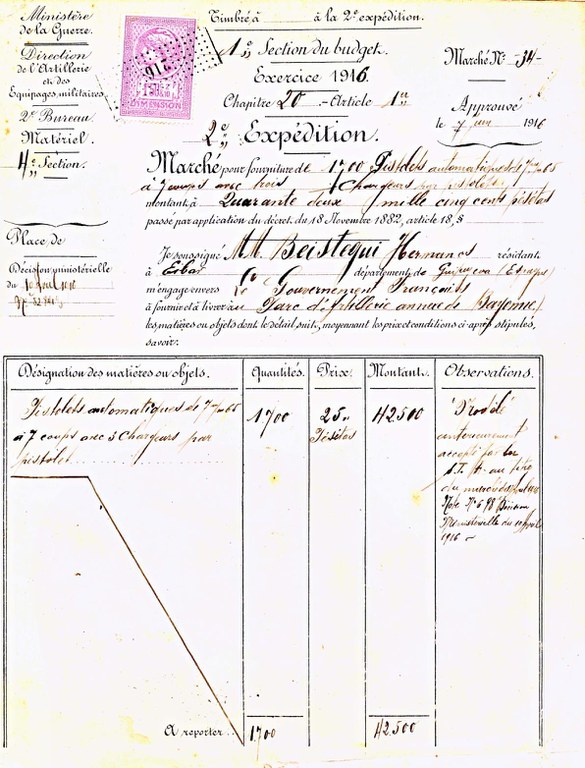 Ministère
de la Guerre.
Direction
de l'Artillerie
et des
Equipages militaires
2e Bureau.
Matériel.
4e Section.
Place de
Décision ministérielle
du
No
DIMENSION
Timbré à à la 2e expédition.
1ere Section du budget.
Exercice 1916.
Chapitre 20 .-Article 1er
2e Expédition.
Marché No 34
Approuvé
le 7 1916
Marché pour fourniture de 1700 Pistolets automatiques de 7mm65
à 7 coups avec trois Chargeurs par pistolet
montant à Quarante deux mille cinq cents pésétas
passé par application du décret du 18 Novembre 1882, article 18, §
Je soussigné MM. Beistegui Hermanos résidant
à Eibar département de Guipuzcoa (Espagne)
m'engage envers le Gouvernement Français
à fournir et à livrer au Parc d'Artillerie annexe de Bayonne
les matières ou objets dont le détail suit, moyennant les prix et conditions ci-après stipulés,
savoir:
Désignation des matières ou objets. Quantités. Prix. Montant. Observations.
Pistolets automatiques de 7mm65 1700 25 42500
à 7 coups avec 3 Chargeurs par Pésétas
pistolet
Modèle
antérieurement
accepté par la
S.T.A.
du marché
Note No 698
Ministérielle du 10 avril
1916
A reporter 1700 42.500